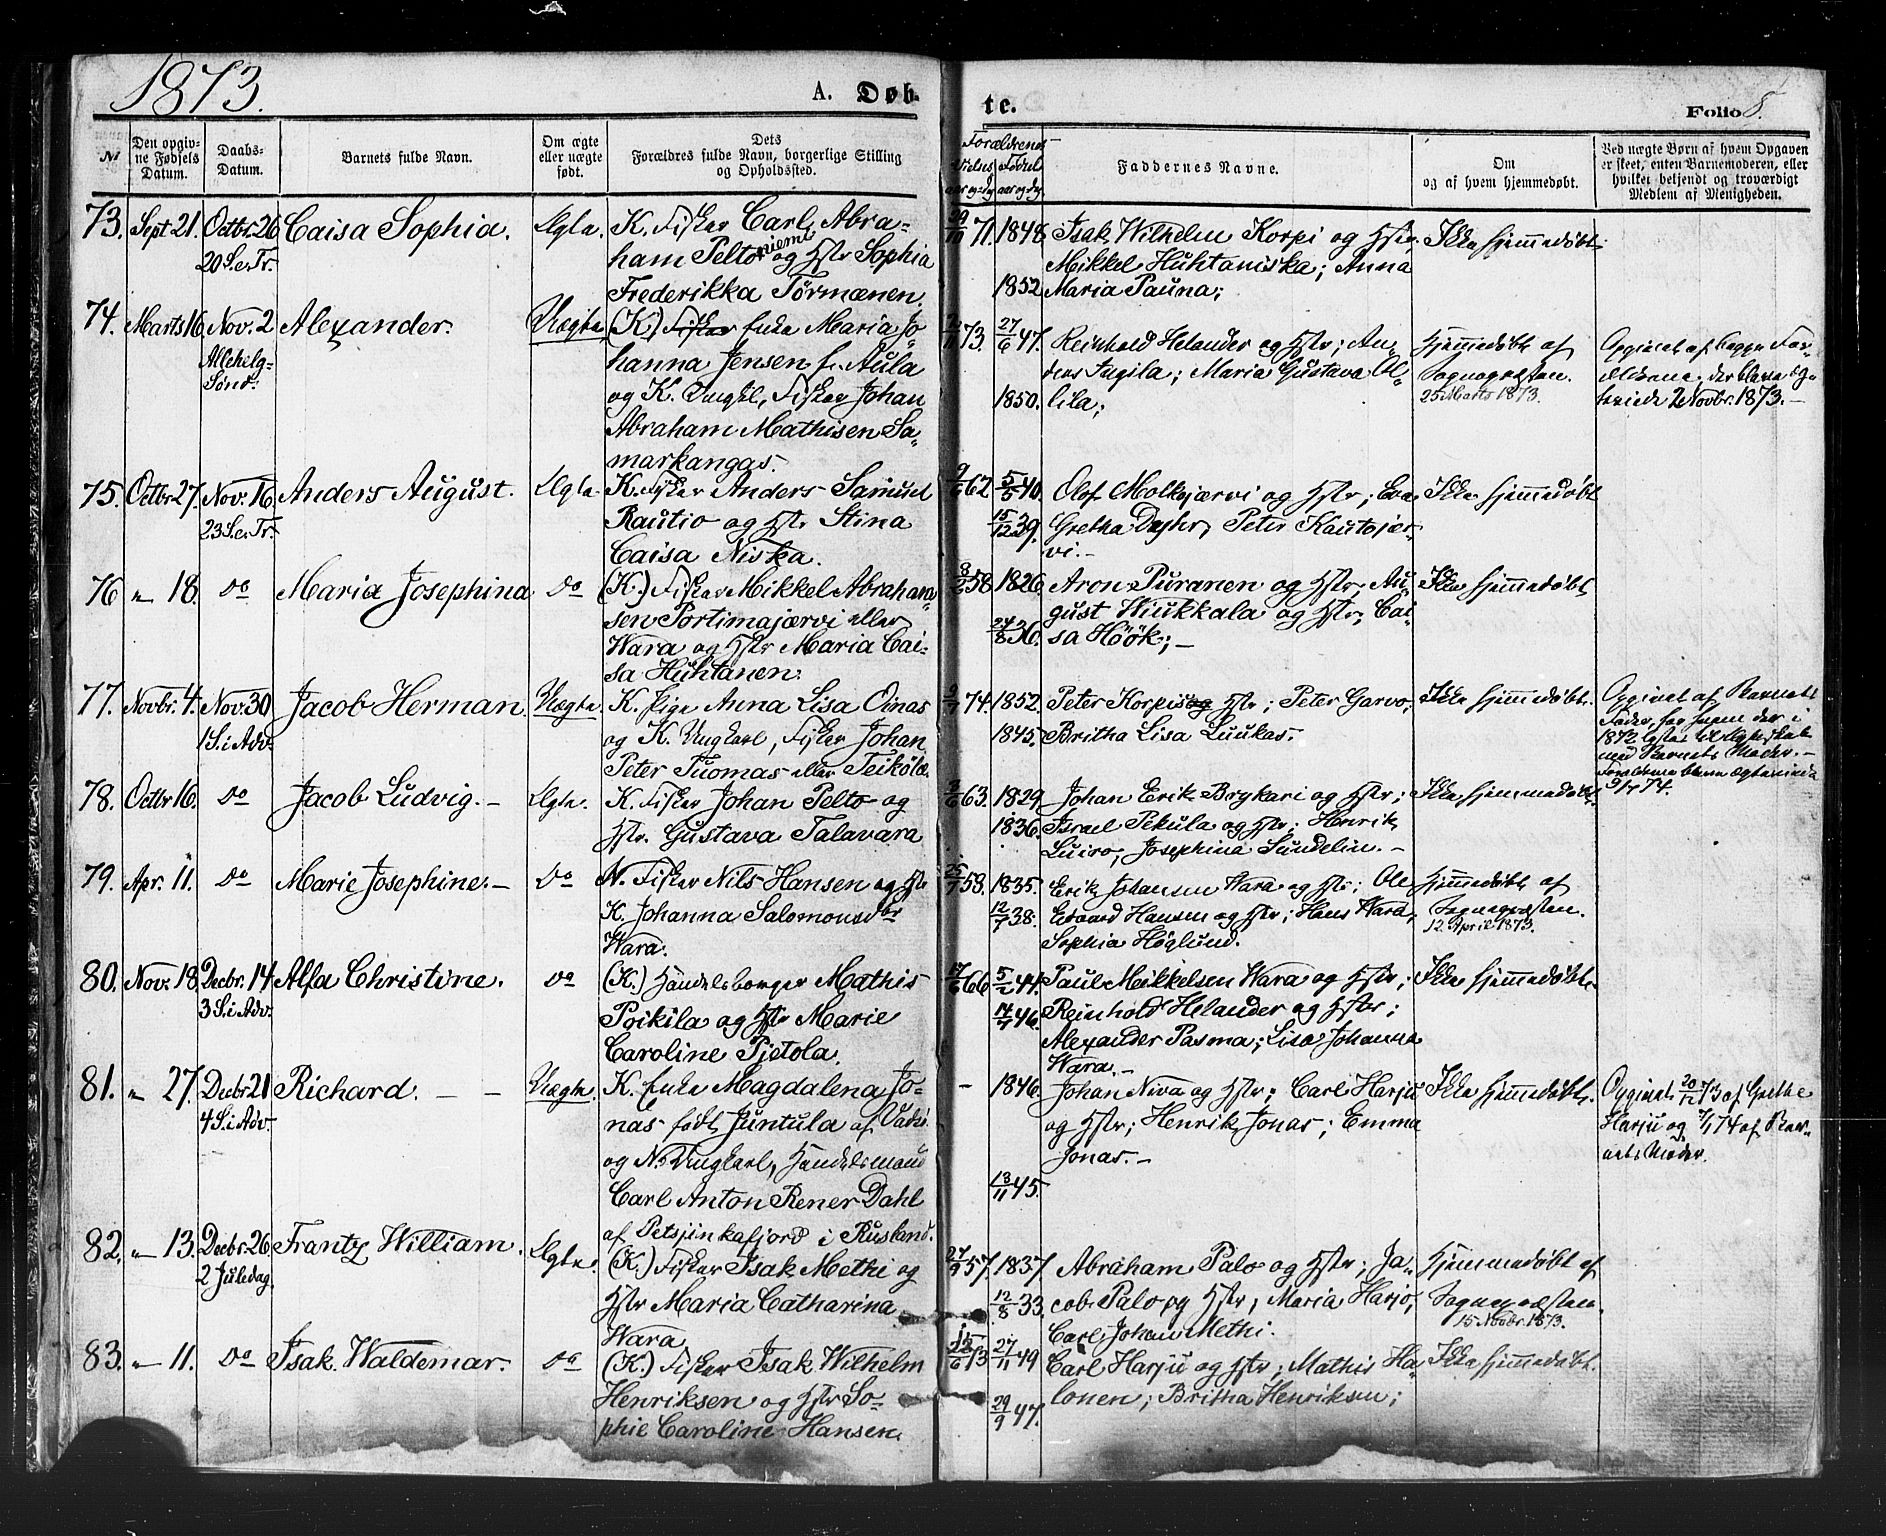 1873.
A. Døb-
te.
Folio 8.
№
Den opgiv-
ne Fødsels
Datum.
Daabs-
Datum.
Barnets fulde Navn.
Om ægte
eller uægte
født.
Dets
Forældres fulde Navn, borgerlige Stilling
og Opholdssted.
Forældrenes
Faddernes Navne.
Om
og af hvem hjemmedøbt.
Ved uægte Børn af hvem Opgaven
er skeet, enten Barnemoderen, eller
hvilket bekjendt og troværdigt
Medlem af Menigheden.
73. Sept 21. Octbr. 26 Caisa Sophia. Ægte. K. Fisker Carl Abra-
20 S. e. Tr. ham Peltoniemi og Hstr Sophia
Frederikka Törmænen.
71. 1848. Isak Wilhelm Korpi og Hstr, Ikke hjemmedøbt.
Mikkel Huhtaniska; Anna
1852 Maria Pauna;
74. Marts 16. Nov. 2 Alexander. Uægte (K.) Enke Maria Jo-
Allehelg- hanna Jensen f. Aula
Sønd. og K. Ungkl, Fisker Johan
Abraham Mathisen Sa-
markangas.
73. 27/6 47. Reinhold Helander og Hstr; An- Hjemmedøbt af Opgivet af begge For-
ders Sugila; Maria Gustava Ol- Sognepræsten. ældrene, der bleve æg-
1850. lila; 25 Marts 1873. teviede 2 Novbr. 1873. –
75. Octbr 27. Nov. 16 Anders August. Ægte. K. Fisker Anders Samuel
23 S. e. Tr. Rautio og Hstr Stina
Caisa Niska.
9/6 62 5/5 40. Olof Molkojærvi og Hstr; Eva Ikke hjemmedøbt
15/12 39. Gretha Dyhr, Peter Kautojær-
vi. –
76 " 18. do Maria Josephina do (K.) Fisker Mikkel Abraham-
sen Portimajærvi eller
Wara og Hstr Maria Cai-
sa Huhtanen.
8/2 58 1826. Aron Puranen og Hstr, Au- Ikke hjemmedøbt
gust Wiukkala og Hstr, Cai-
24/8 36. sa Höök; –
77. Novbr. 4. Nov. 30 Jacob Herman. Uægte K. Pige Anna Lisa Oinas
1 S. i Adv. og K. Ungkarl, Fisker Johan
Peter Tuomas eller Teikölæ.
74. 1852. Peter Korpi og Hstr; Peter Garvo, Ikke hjemmedøbt. Opgivet af Barnets
1845. Britha Lisa Luukas. Fader,
1872
med Barnets Moder. –
Forældrene bleve ægteviede
9/1 74.
78. Octbr 16. do Jacob Ludvig. – Ægte. K. Fisker Johan Pelto og
Hstr. Gustava Talavara
63. 1829 Johan Erik Brykari og Hstr; Ikke hjemmedøbt.
1836. Israel Pekula og Hstr; Henrik
Luiro, Josephina Sundelin. –
79. Apr. 11. do Marie Josephine. – do N. Fisker Nils Hansen og Hstr
K. Johanna Salomonsdtr
Wara.
25/7 58. 1835. Erik Johansen Wara og Hstr; Ole Hjemmedøbt af
12/7 38. Edvard Hansen og Hstr; Hans Wara, Sognepræsten.
Sophia Höglund. 12 April 1873.
80. Nov. 18. Decbr. 14 Alfa Christine. do (K.) Handelsborger Mathis
3 S. i Adv. Poikila og Hstr Marie
Caroline Pietola.
17/6 66 5/2 44. Paul Mikkelsen Wara og Hstr; Ikke hjemmedøbt.
46. Reinhold Helander og Hstr;
Alexander Pasma; Lisa Johanna
Wara. –
81. " 27. Decbr 21 Richard. – – Uægte. K. Enke Magdalena Jo-
4 S. i Adv. nas født Juntula af Vadsø
og N. Ungkarl, Handelsmand
Carl Anton Rener Dahl
af Petsjinkafjord i Rusland.
– 1846. Johan Niva og Hstr; Carl Harju Ikke hjemmedøbt. Opgivet 20/12 73 af Grethe
og Hstr; Henrik Jonas; Emma Harju og 7/1 74 af Bar-
Jonas. – nets Moder.
13/11 45.
82. " 13. Decbr. 26 Frantz William. Ægte. (K.) Fisker Isak Methi og
2 Juledag. Hstr Maria Catharina
Wara
27/9 57. 1837 Abraham Palo og Hstr; Ja- Hjemmedøbt af
12/8 33. cob Palo og Hstr, Maria Harjo, Sognepræsten.
Carl Johan Methi. 15 Novbr. 1873.
83. " 11. do Isak Waldemar. do (K.) Fisker Isak Wilhelm
Henriksen og Hstr So-
phie Caroline Hansen.
15/6 73 27/11 49 Carl Harju og Hstr; Mathis Ha- Ikke hjemmedøbt.
29/9 47. lonen; Britha Henriksen;